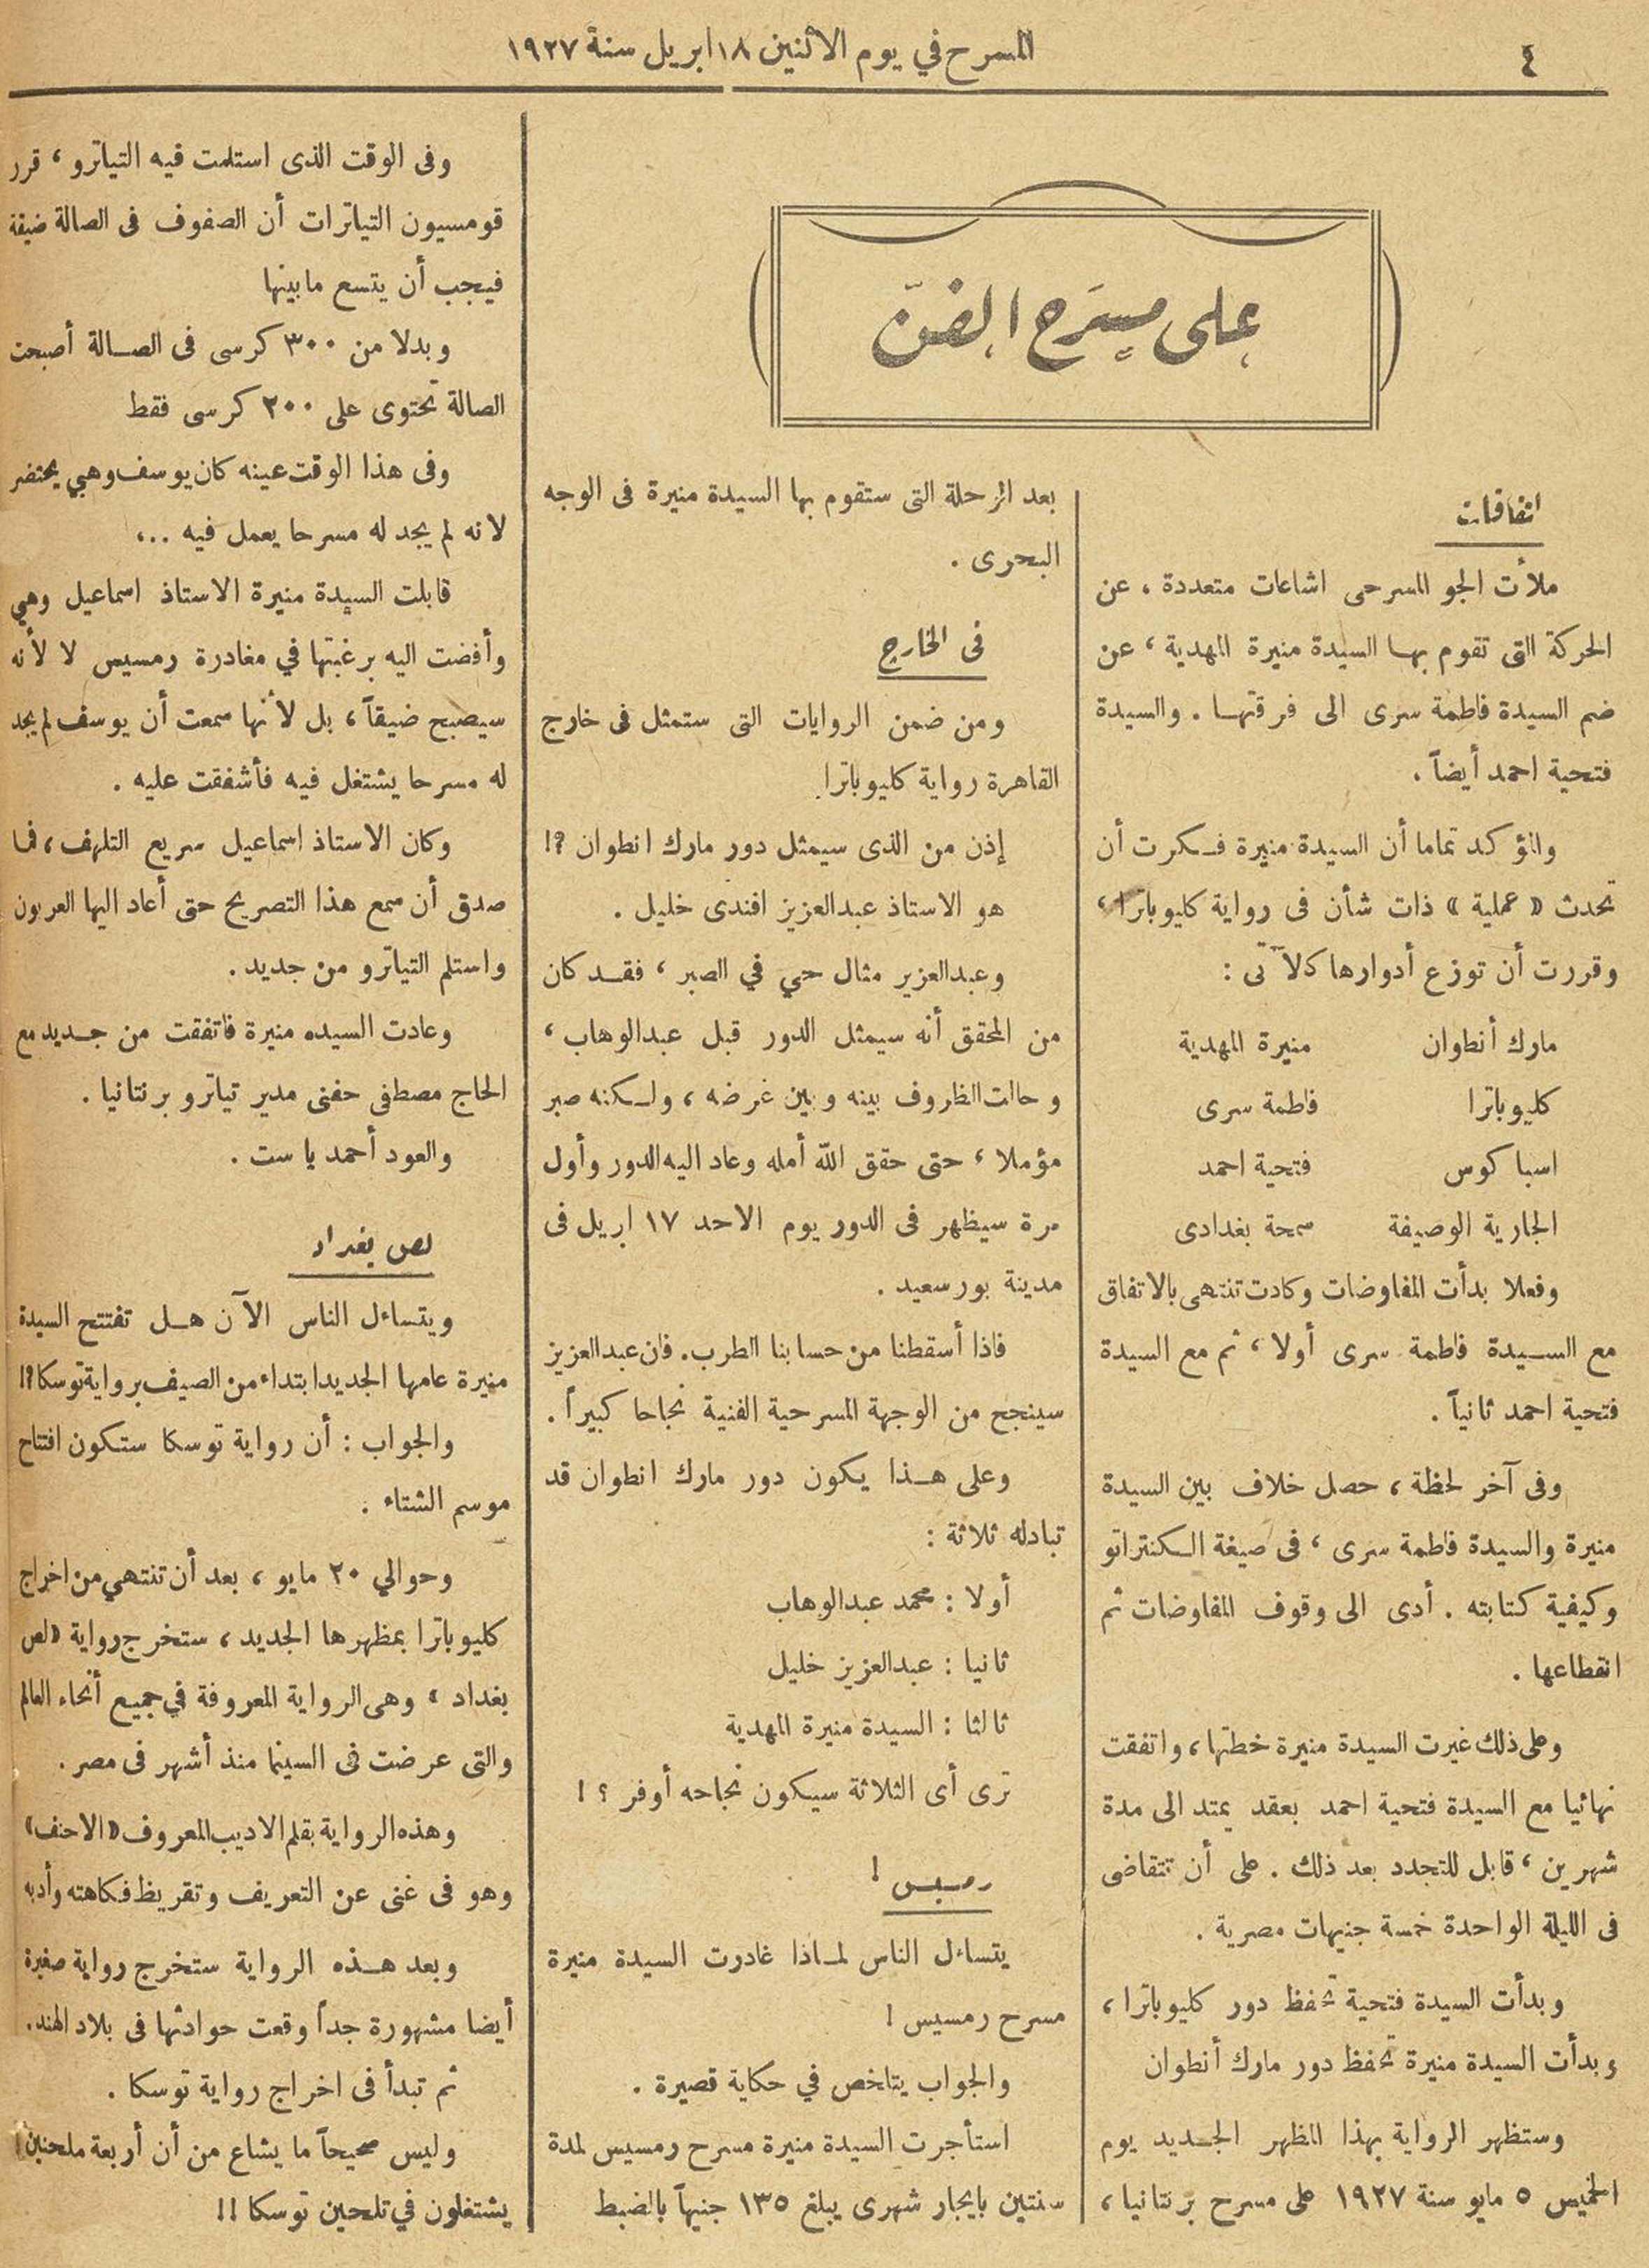 ٤
المسرح في يوم الاثنين ١٨ ابريل سنة ١٩٢٧
على مسرح الفن
اتفاقات
ملأت الجو المسرحى اشاعات متعددة ، عن
الحركة التى تقوم بها السيدة منيرة المهدية ، عن
ضم السيدة فاطمة سرى الى فرقتها . والسيدة
فتحية احمد أيضاً .
والمؤكد تماما أن السيدة منيرة فكرت أن
تحدث « عملية » ذات شأن فى رواية كليوباترا ،
وقررت أن توزع أدوارها كالآتى :
مارك أنطوان منيرة المهدية
كليوباترا فاطمة سرى
اسباكوس فتحية احمد
الجارية الوصيفة سمحة بغدادى
وفعلا بدأت المفاوضات وكادت تنتهى بالاتفاق
مع السيدة فاطمة سرى أولا ، ثم مع السيدة
فتحية احمد ثانياً .
وفى آخر لحظة ، حصل خلاف بين السيدة
منيرة والسيدة فاطمة سرى ، فى صيغة الكنتراتو
وكيفية كتابته . أدى الى وقوف المفاوضات ثم
انقطاعها .
وعلى ذلك غيرت السيدة منيرة خطتها ، واتفقت
نهائيا مع السيدة فتحية احمد بعقد يمتد الى مدة
شهرين ، قابل للتجدد بعد ذلك . على أن تتقاضى
فى الليلة الواحدة خمسة جنيهات مصرية .
وبدأت السيدة فتحية تحفظ دور كليوباترا ،
وبدأت السيدة منيرة تحفظ دور مارك أنطوان
وستظهر الرواية بهذا المظهر الجديد يوم
الخميس ٥ مايو سنة ١٩٢٧ على مسرح برنتانيا ،
بعد الرحلة التى ستقوم بها السيدة منيرة فى الوجه
البحرى .
فى الخارج
ومن ضمن الروايات التى ستمثل فى خارج
القاهرة رواية كليوباترا
إذن من الذى سيمثل دور مارك انطوان ؟!
هو الاستاذ عبدالعزيز افندى خليل .
وعبدالعزير مثال حي في الصبر ، فقد كان
من المحقق أنه سيمثل الدور قبل عبدالوهاب ،
وحالت الظروف بينه وبين غرضه ، ولكنه صبر
مؤملا ، حتى حقق الله أمله وعاد اليه الدور وأول
مرة سيظهر فى الدور يوم الاحد ١٧ ابريل فى
مدينة بورسعيد .
فاذا أسقطنا من حسابنا الطرب . فان عبدالعزيز
سينجح من الوجهة المسرحية الفنية نجاحا كبيراً .
وعلى هذا يكون دور مارك انطوان قد
تبادله ثلاثة :
أولا : محمد عبدالوهاب
ثانيا : عبدالعزيز خليل
ثالثا : السيدة منيرة المهدية
ترى أى الثلاثة سيكون نجاحه أوفر ؟ !
رمسيس !
يتساءل الناس لماذا غادرت السيدة منيرة
مسرح رمسيس !
والجواب يتاخص في حكاية قصيرة .
استأجرت السيدة منيرة مسرح رمسيس لمدة
سنتين بايجار شهرى يبلغ ١٣٥ جنيهاً بالضبط
وفى الوقت الذى استلمت فيه التياترو ، قرر
قومسيون التياترات أن الصفوف فى الصالة ضيقة
فيجب أن يتسع مابينها
وبدلا من ٣٠٠ كرسى فى الصالة أصبحت
الصالة تحتوى على ٢٠٠ كرسى فقط
وفى هذا الوقت عينه كان يوسف وهبي يحتضر
لانه لم يجد له مسرحا يعمل فيه ..،
قابلت السيدة منيرة الاستاذ اسماعيل وهبي
وأفضت اليه برغبتها في مغادرة رمسيس لا لأنه
سيصبح ضيقاً ، بل لأنها سمعت أن يوسف لم يجد
له مسرحا يشتغل فيه فأشفقت عليه .
وكان الاستاذ اسماعيل سريع التلهف ، فما
صدق أن سمع هذا التصريح حتى أعاد اليها العربون
واستلم التياترو من جديد .
وعادت السيده منيرة فاتفقت من جديد مع
الحاج مصطفى حفنى مدير تياترو برنتانيا .
والعود أحمد يا ست .
لص بغداد
ويتساءل الناس الآن هل تفتتح السيدة
منيرة عامها الجديد ابتداء من الصيف برواية توسكا ؟!
والجواب : أن رواية توسكا ستكون افتتاح
موسم الشتاء .
وحوالي ٢٠ مايو ، بعد أن تنتهي من اخراج
كليوباترا بمظهرها الجديد ، ستخرج رواية « لص
بغداد » وهى الرواية المعروفة في جميع أنحاء العالم
والتى عرضت فى السينما منذ أشهر فى مصر .
وهذه الرواية بقلم الاديب المعروف « الاحنف »
وهو فى غنى عن التعريف وتقريظ فكاهته وأدبه
وبعد هذه الرواية ستخرج رواية صغيرة
أيضا مشهورة جداً وقعت حوادثها فى بلاد الهند .
ثم تبدأ فى اخراج رواية توسكا .
وليس صحيحاً ما يشاع من أن أربعة ملحنين
يشتغلون في تلحين توسكا !!